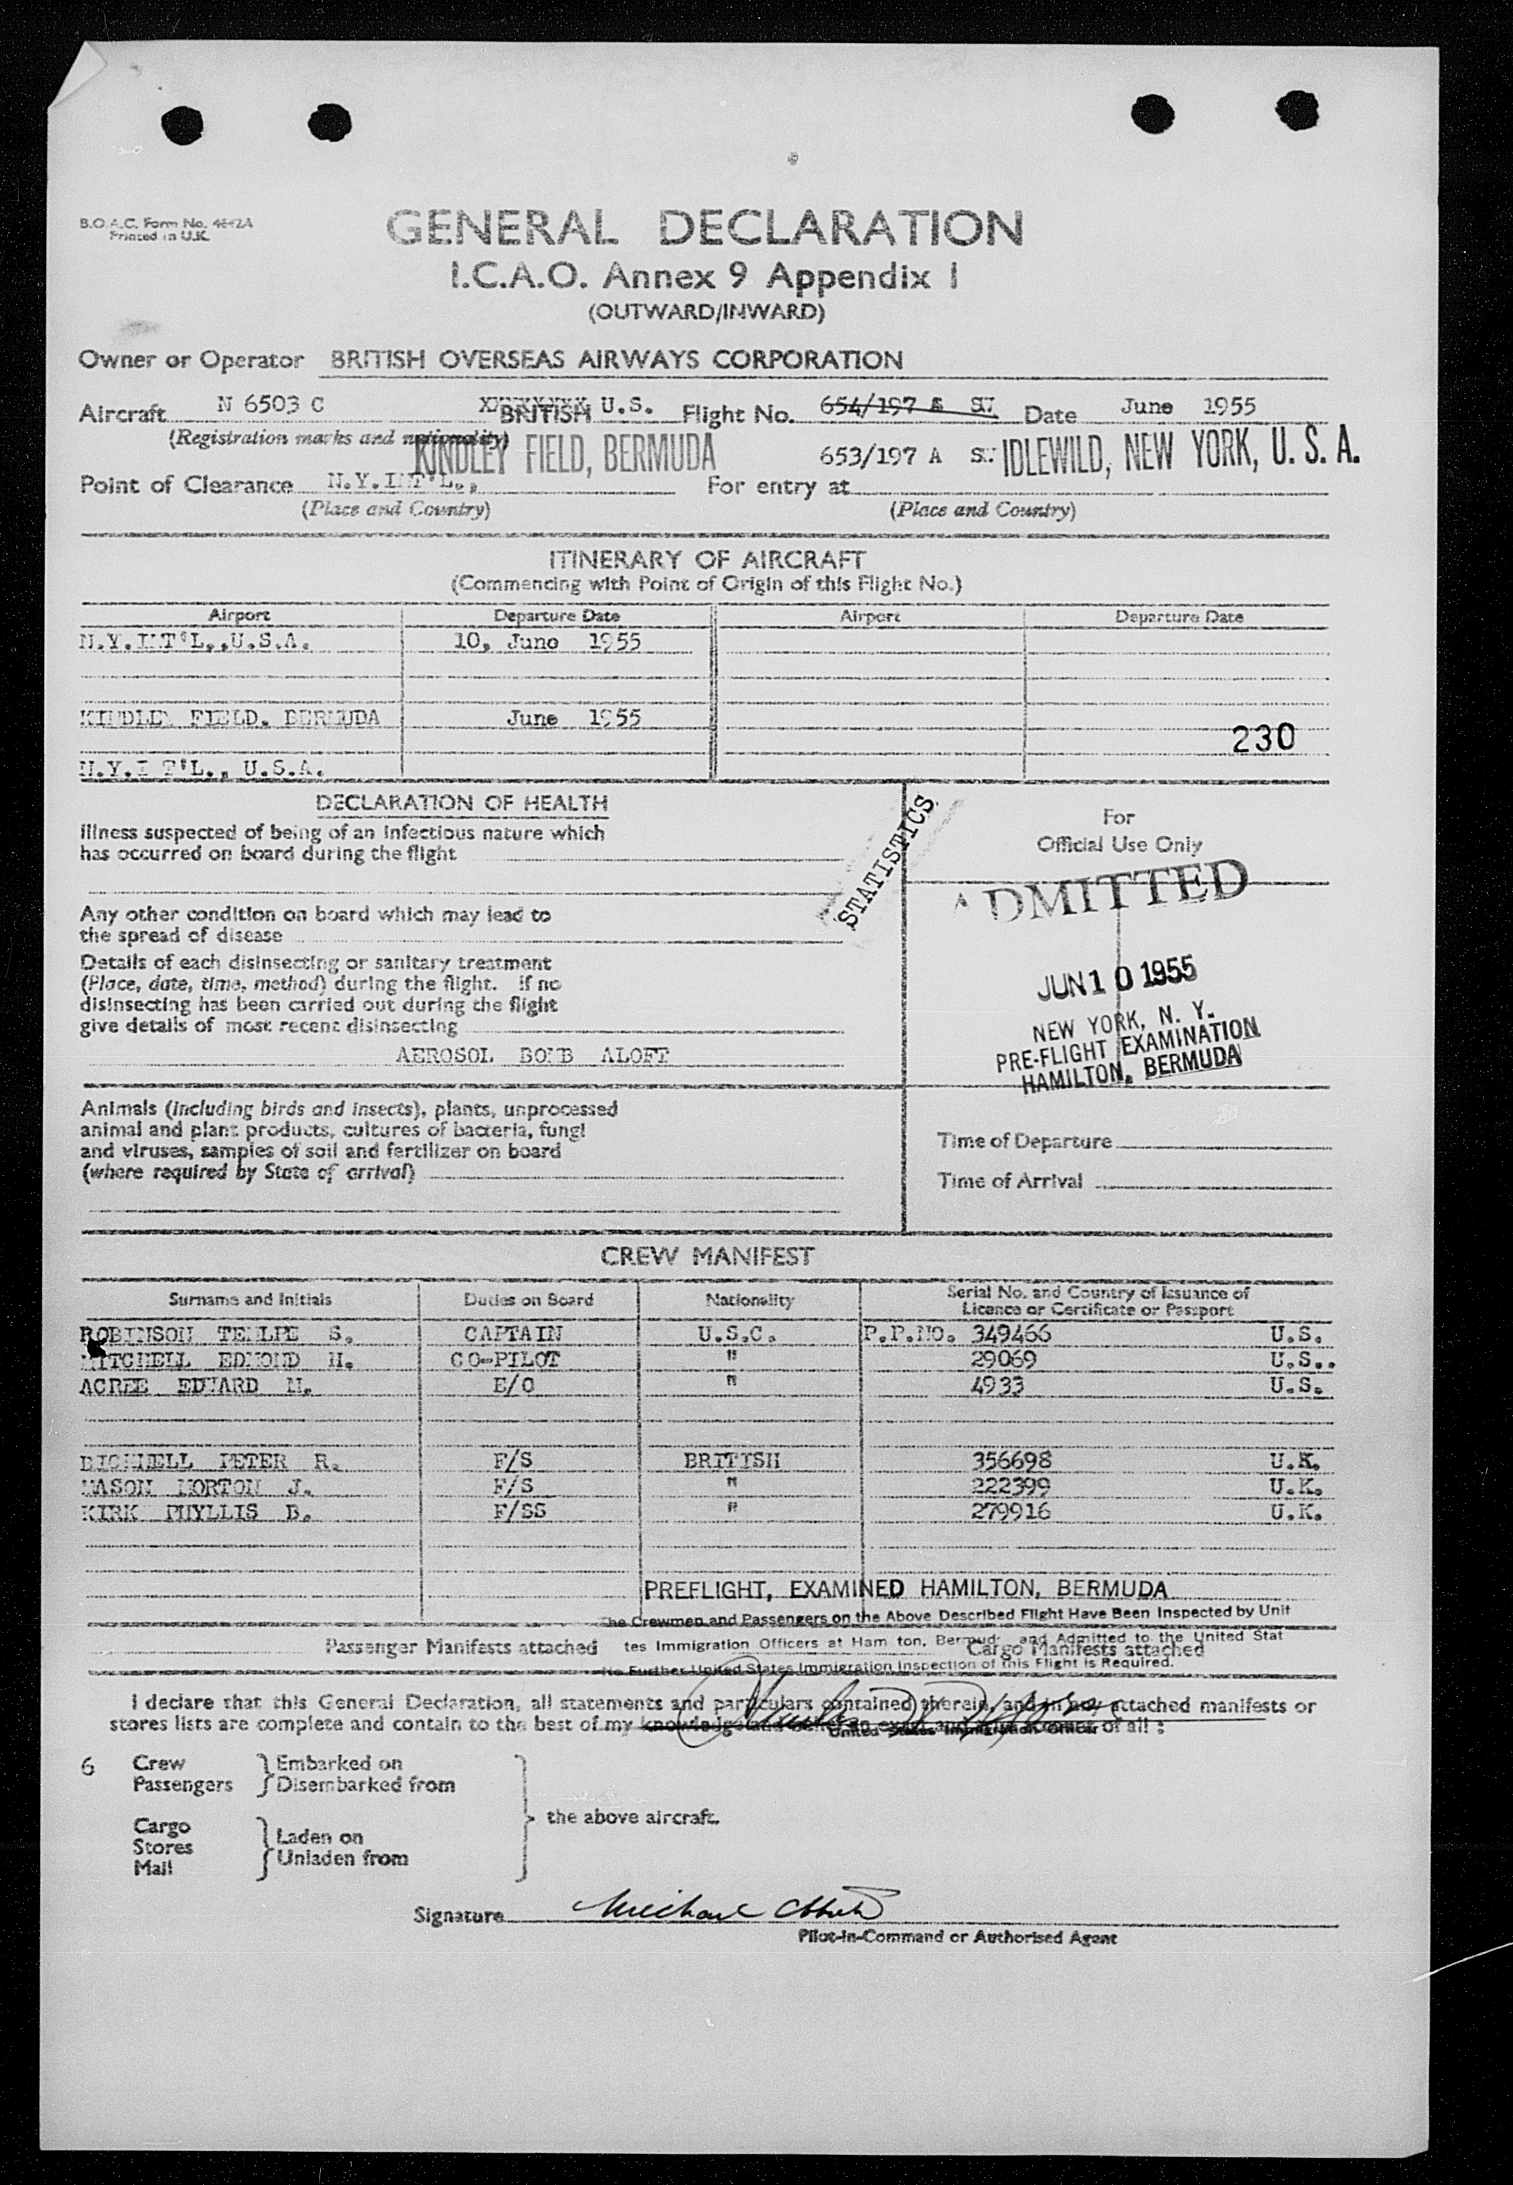 B.O.A.C. Form No. 4642A
Printed in U.K.
GENERAL DECLARATION
I.C.A.O. Annex 9 Appendix I
(OUTWARD/INWARD)
Owner or Operator BRITISH OVERSEAS AIRWAYS CORPORATION
Aircraft N 6503 C BRITISH U.S. Flight No. 654/197 A SW Date June 1955
(Registration marks and nationality)
KINDLEY FIELD, BERMUDA 653/197 A SW IDLEWILD, NEW YORK, U. S. A.
Point of Clearance N.Y.INT'L., For entry at
(Place and Country) (Place and Country)
ITINERARY OF AIRCRAFT
(Commencing with Point of Origin of this Flight No.)
Airport Departure Date Airport Departure Date
N.Y.INT'L.,U.S.A. 10, June 1955
KINDLEY FIELD. BERMUDA June 1955
230
N.Y.INT'L., U.S.A.
DECLARATION OF HEALTH
Illness suspected of being of an infectious nature which
has occurred on board during the flight
STATISTICS
For
Official Use Only
ADMITTED
Any other condition on board which may lead to
the spread of disease
Details of each disinsecting or sanitary treatment
(Place, date, time, method) during the flight. If no
disinsecting has been carried out during the flight
give details of most recent disinsecting
AEROSOL BOMB ALOFT
JUN 10 1955
NEW YORK, N. Y.
PRE-FLIGHT EXAMINATION
HAMILTON, BERMUDA
Animals (including birds and insects), plants, unprocessed
animal and plant products, cultures of bacteria, fungi
and viruses, samples of soil and fertilizer on board
(where required by State of arrival)
Time of Departure
Time of Arrival
CREW MANIFEST
Surname and Initials Duties on Board Nationality Serial No. and Country of Issuance of
Licence or Certificate or Passport
ROBINSON TEMLPE S. CAPTAIN U.S.C. P.P.NO. 349466 U.S.
MITCHELL EDMOND H. CO-PILOT " 29069 U.S..
ACREE EDWARD M. E/O " 4933 U.S.
PETER R. F/S BRITISH 356698 U.K.
MASON MORTON J. F/S " 222399 U.K.
KIRK PHYLLIS B. F/SS " 279916 U.K.
PREFLIGHT, EXAMINED HAMILTON, BERMUDA
The Crewmen and Passengers on the Above Described Flight Have Been Inspected by Unit
tes Immigration Officers at Ham ton, Bermud and Admitted to the United Stat
Passenger Manifests attached Cargo Manifests attached
No Further United States Immigration Inspection of this Flight is Required.
I declare that this General Declaration, all statements and particulars contained therein, and in any attached manifests or
stores lists are complete and contain to the best of my knowledge and belief an exact and true account of all :
United States Immigration Officer
6 Crew Embarked on
Passengers Disembarked from
the above aircraft.
Cargo
Stores Laden on
Mail Unladen from
Signature Michael
Pilot-in-Command or Authorised Agent